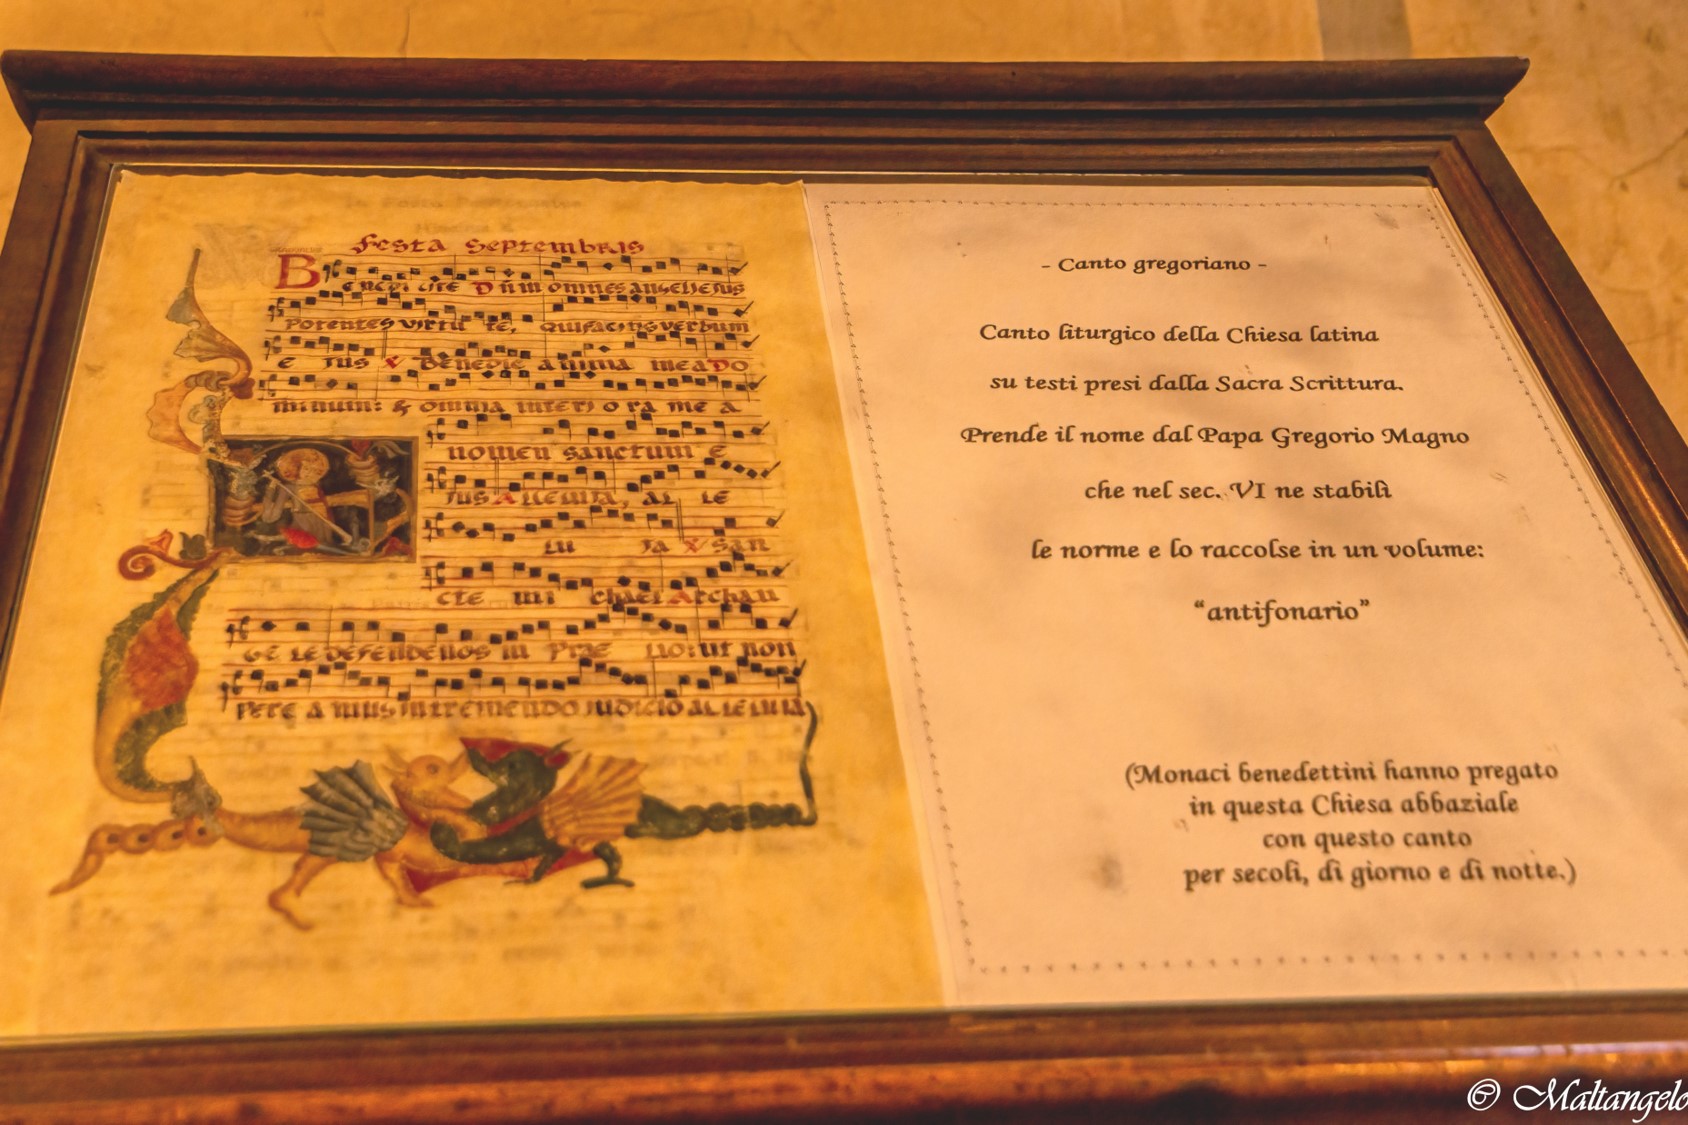 Festa Septembris
Benedicite Dnm omnes angeli ejus
potentes virtute, qui facitis verbum
ejus ℣ Benedic anima mea Do
minum: & omnia interiora mea
nomen sanctum e
jus Alleluia, al le
lu ja ℣ San
cte mi chael Archan
ge le defende nos in prae lio: ut non
pereamus in tremendo judicio alleluia
- Canto gregoriano -
Canto liturgico della Chiesa latina
su testi presi dalla Sacra Scrittura.
Prende il nome dal Papa Gregorio Magno
che nel sec. VI ne stabilì
le norme e lo raccolse in un volume:
“antifonario”
(Monaci benedettini hanno pregato
in questa Chiesa abbaziale
con questo canto
per secoli, di giorno e di notte.)
© Maltangelo